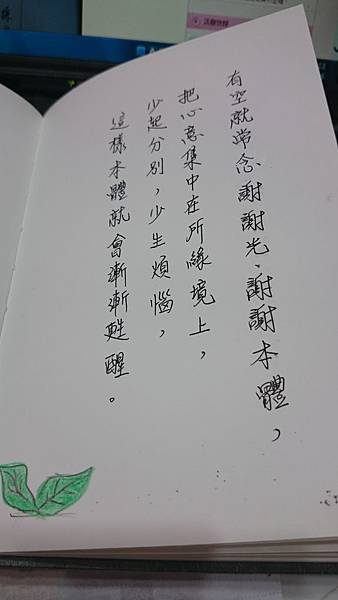 有空就常念謝謝光、謝謝本體，
把心意集中在所緣境上，
少起分別，少生煩惱，
這樣本體就會漸漸甦醒。